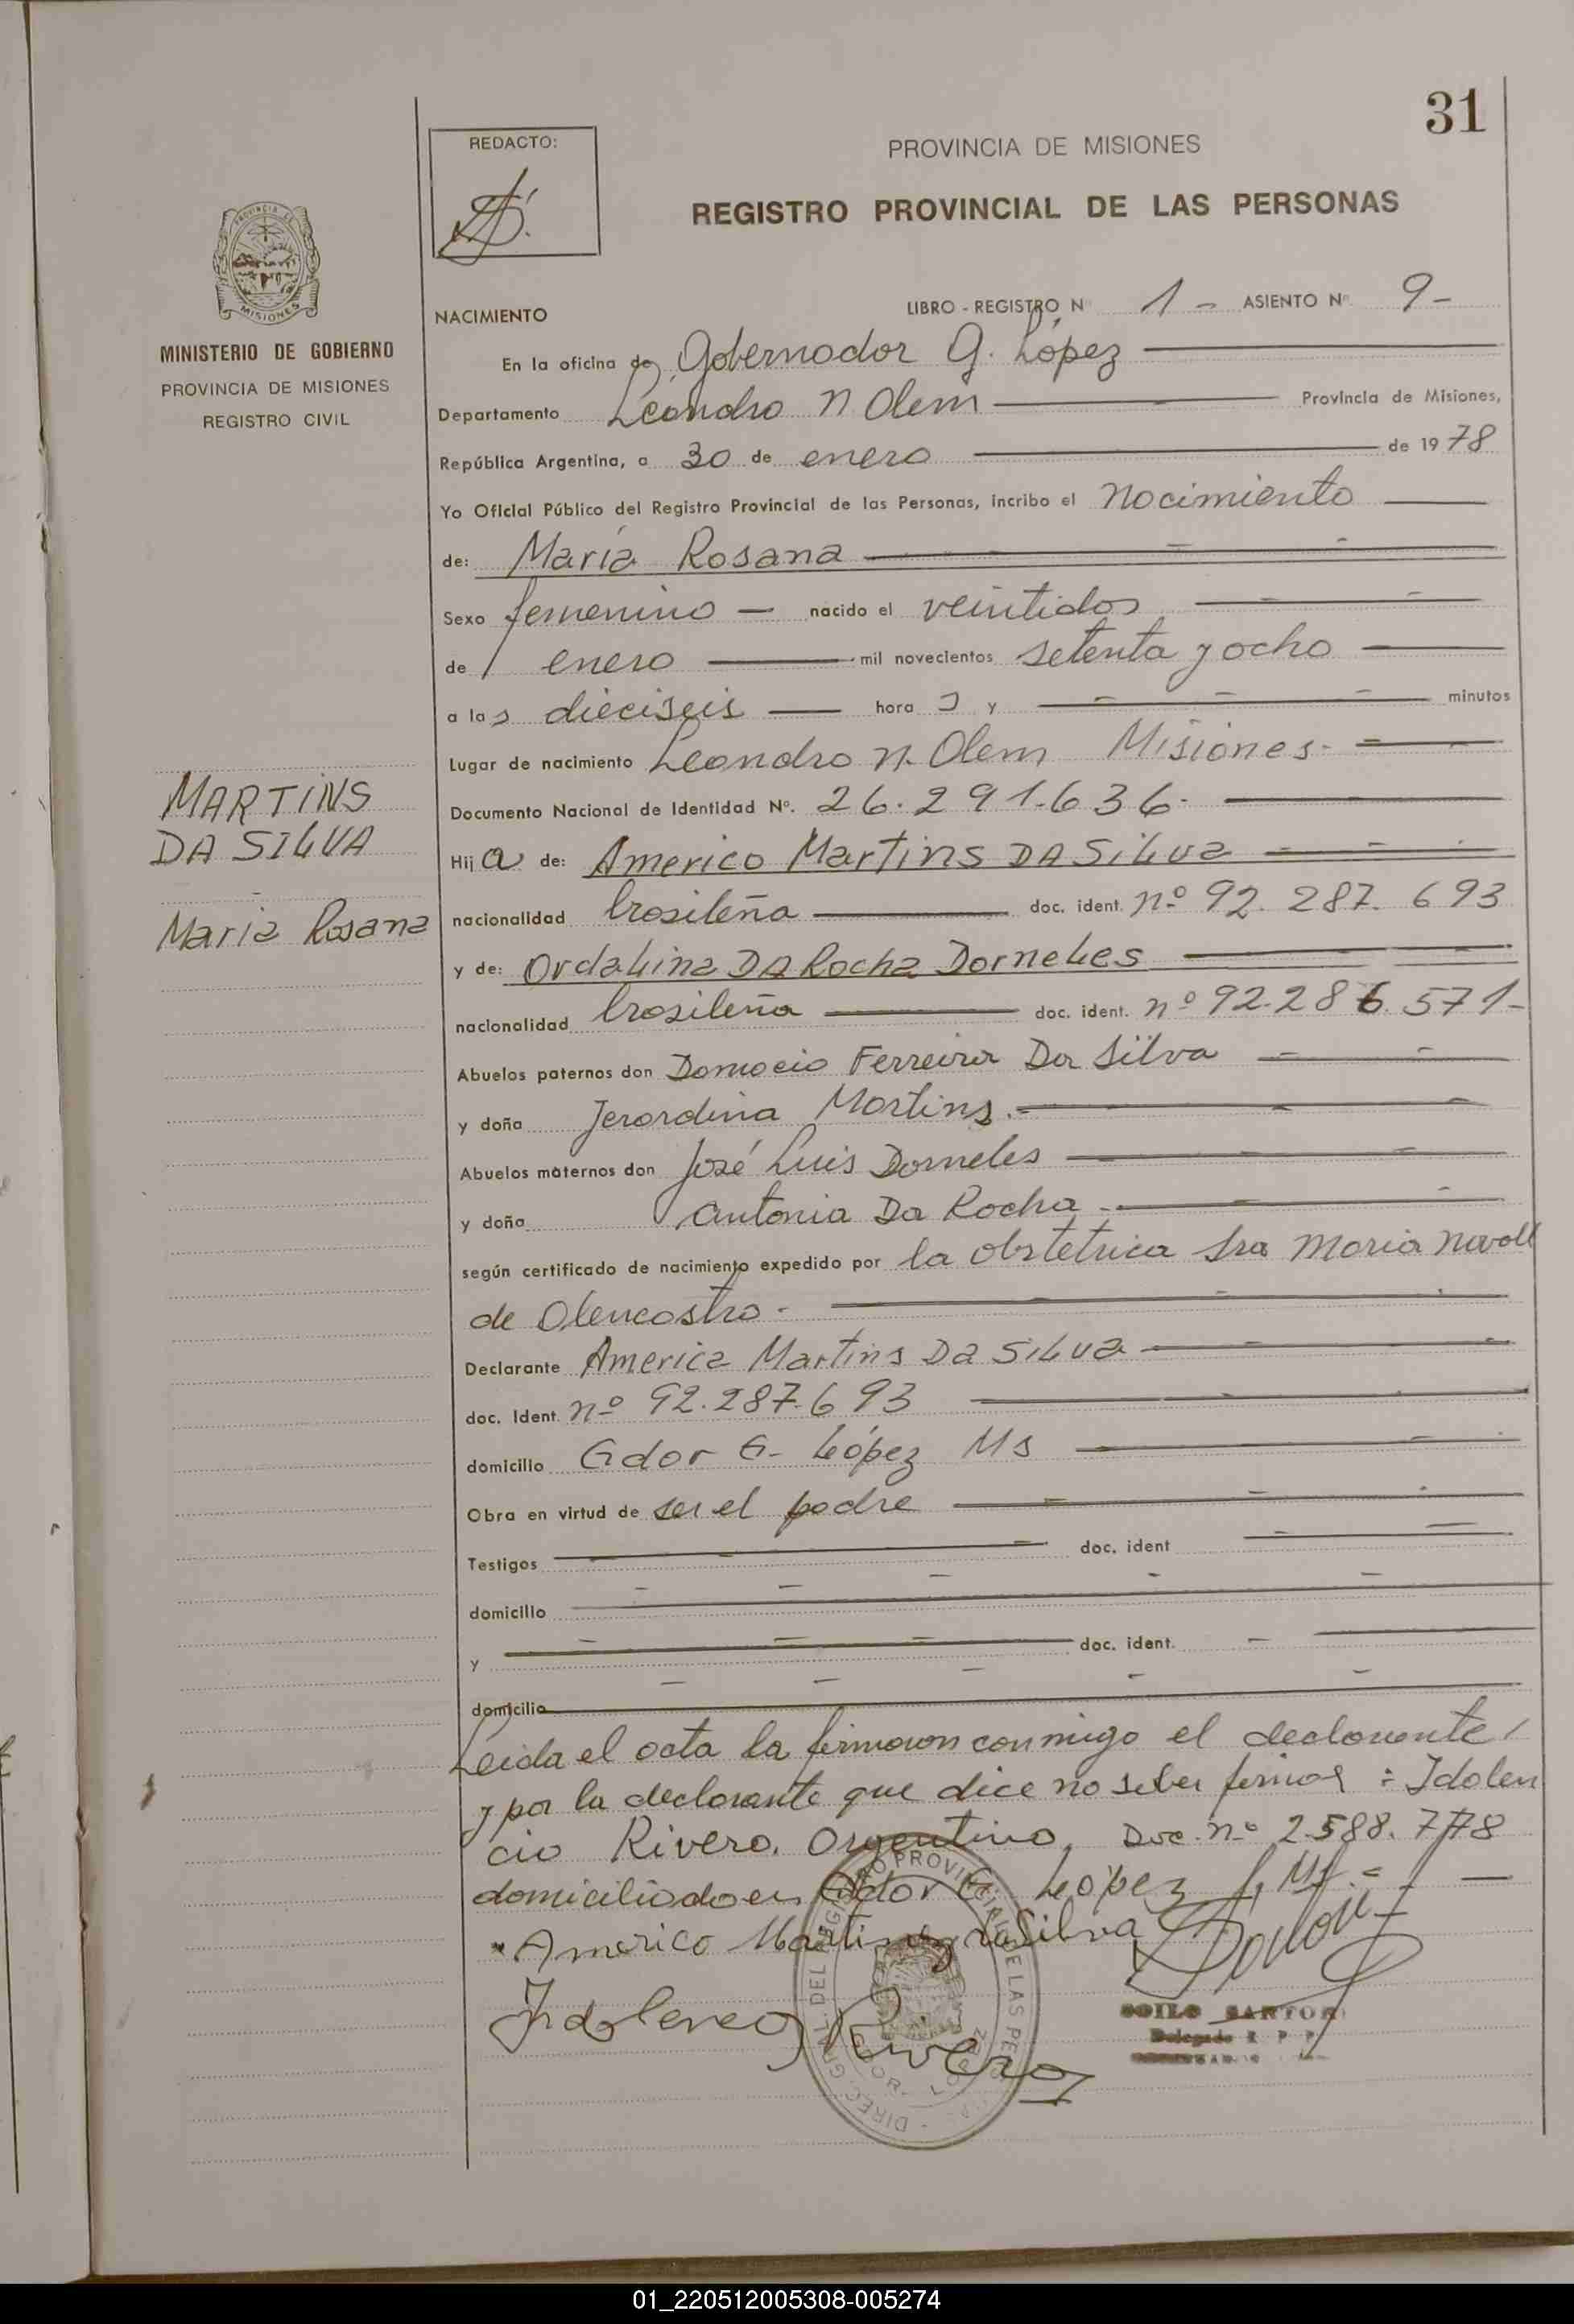 31
REDACTO:
PROVINCIA DE MISIONES
REGISTRO PROVINCIAL DE LAS PERSONAS
PROVINCIA DE
MISIONES
MINISTERIO DE GOBIERNO
PROVINCIA DE MISIONES
REGISTRO CIVIL
MARTINS
DA SILVA
Maria Rosana
NACIMIENTO LIBRO - REGISTRO Nº 1 - ASIENTO Nº 9-
En la oficina de Gobernador G. López
Departamento Leandro N Alem Provincia de Misiones,
República Argentina, a 30 de enero de 1978
Yo Oficial Público del Registro Provincial de las Personas, incribo el nacimiento
de: María Rosana
Sexo femenino — nacido el veintidos
de enero mil novecientos setenta y ocho
a las dieciseis — hora s y minutos
Lugar de nacimiento Leandro N. Alem Misiones-
Documento Nacional de Identidad Nº. 26.291.636-
Hij a de: Americo Martins DA SiLva
nacionalidad brasileña doc. ident. nº 92.287.693
y de: OrdaLina DA Rocha DorneLes
nacionalidad brasileña doc. ident. nº 92.286.571-
Abuelos paternos don Ferreira Da Silva
y doña Jerordina Martins.-
Abuelos maternos don José Luis Dorneles
y doña Antonia Da Rocha -
según certificado de nacimiento expedido por la obstetrica Sra Maria
de Alencastro -
Declarante America Martins Da SiLva
doc. Ident. nº 92.287.693
domicilio Gdor G- López Ms
Obra en virtud de ser el padre
Testigos doc. ident
domicilio
y doc. ident.
domicilio
Leida el acta la firmaron conmigo el declarante
y por la declarante que dice no saber firmar : Idolen
cio Rivero. Argentino, Doc. nº 2.588.778
domiciliado en Gdor G. López, Ms.=
Americo Martins da Silva
Idolencio Rivero
DIREC. GRAL. DEL REGISTRO PROVINCIAL DE LAS PERS
GDOR. LOPEZ
Delegado R P P
01_220512005308-005274